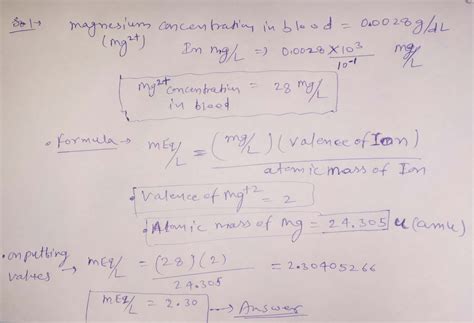 Sol 1→ magnesium concentration in blood = 0.0028 g/dL
(mg²⁺)
In mg/L => 0.0028 × 10³ / 10⁻¹ mg/L
mg²⁺ concentration in blood = 28 mg/L
• Formula → mEq/L = (mg/L)(valence of Ion) / atomic mass of Ion
• Valence of mg⁺² = 2
• Atomic mass of mg = 24.305 u (amu)
• on putting values → mEq/L = (28)(2) / 24.305 = 2.30405266
mEq/L = 2.30 → Answer